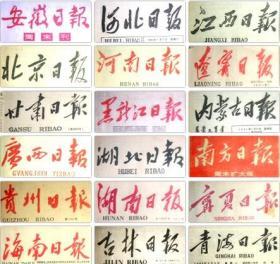 安徽日報
周末刊
河北日報
HEBEI RIBAO
江西日報
JIANGXI RIBAO
北京日報
河南日報
HENAN RIBAO
遼寧日報
LIAONING RIBAO
甘肅日報
GANSU RIBAO
黑龍江日報
内蒙古日報
廣西日報
GVANGJSIH YIZBAU
湖北日報
HUBEI RIBAO
南方日報
周末扩大版
貴州日報
GUIZHOU RIBAO
湖南日報
HUNAN RIBAO
寧夏日報
NINGXIA RIBAO
海南日報
HAINAN RIBAO
吉林日報
JILIN RIBAO
青海日報
QINGHAI RIBAO